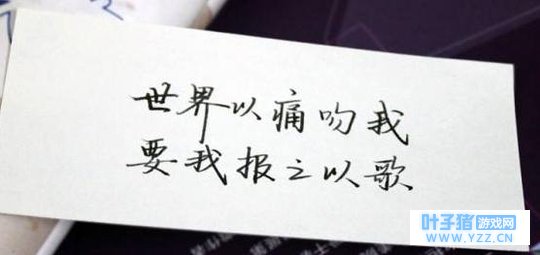 世界以痛吻我
要我报之以歌
叶子猪游戏网
www.YZZ.CN